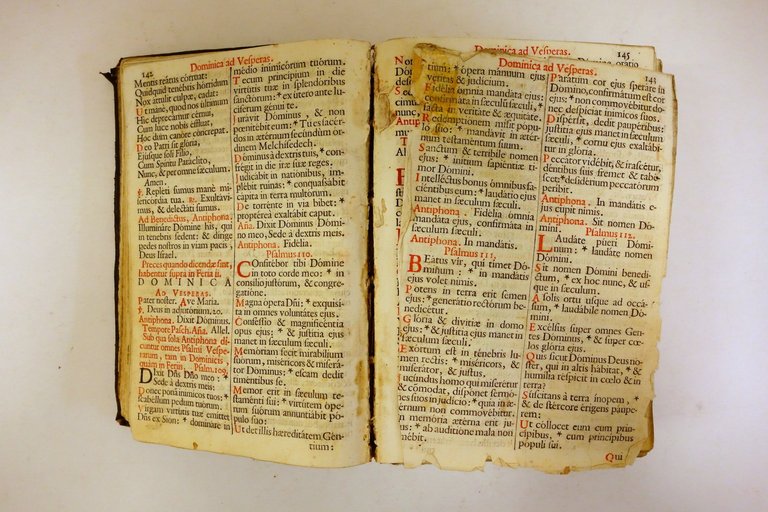 142
Dominica ad Vesperas.
Mentis reátus córruat:
Quidquid tenébris hórridum
Nox áttulit culpæ, cadat:
Ut mane, quod nos últimum
Hic deprecámur cérnui,
Cum luce nobis éffluat,
Hoc dum canóre concrepat.
Deo Patri sit glória,
Ejúsque soli Filio,
Cum Spíritu Paráclito,
Nunc, & per omne sæculum.
Amen.
℣. Repléti sumus manè mi-
sericórdia tua. ℟. Exultávi-
mus, & delectáti sumus.
Ad Benedictus, Antiphona.
Illumináre Dómine his, qui
in tenebris sedent: & dirige
pedes nostros in viam pacis,
Deus Israel.
Preces quando dicendæ sint,
habentur supra in Feria ii.
DOMINICA
AD VESPERAS.
Pater noster. Ave María.
℣. Deus in adjutórium. 20.
Antiphona. Dixit Dóminus.
Tempore Pasch. Aña. Allel.
Sub qua sola Antiphona di-
cuntur omnes Psalmi Vespe-
rarum, tam in Dominicis,
quàm in Feriis. Psalm.109.
DIxit Dñs Dño meo: *
Sede à dextris meis:
Donec ponā inimícos tuos: *
scabéllum pedum tuórum.
Virgam virtútis tuæ emíttet
Dñs ex Sion: * domináre in
médio inimicórum tuórum.
Tecum princípium in die
virtútis tuæ in splendóribus
sanctórum: * ex útero ante lu-
cíferum génui te.
Jurávit Dóminus, & non
pœnitébit eum: * Tu es sacér-
dos in ætérnum secúndùm ór-
dinem Melchísedech.
Dóminus à dextris tuis, * con-
frégit in die iræ suæ reges.
Judicábit in natiónibus, im-
plébit ruínas: * conquassábit
cápita in terra multórum.
De torrénte in via bibet: *
proptéreà exaltábit caput.
Aña. Dixit Dóminus Dómi-
no meo, Sede à dextris meis.
Antiphona. Fidélia.
Psalmus 110.
COnfitébor tibi Dómine
in toto corde meo: * in
consílio justórum, & congre-
gatióne.
Magna ópera Dñi: * exquisí-
ta in omnes voluntátes ejus.
Conféssio & magnificéntia
opus ejus: * & justítia ejus
manet in sæculum sæculi.
Memóriam fecit mirabílium
suórum, miséricors & miserá-
tor Dóminus: * escam dedit
timéntibus se.
Memor erit in sæculum te-
staménti sui: * virtútem óper-
um suórum annuntiábit pó-
pulo suo:
Ut det illis hæreditátem Gén-
tium:
Dominica ad Vesperas.
145
Dominica ad Vesperas.
143
tium: * ópera mánuum ejus
véritas & judícium.
Fidélia ómnia mandáta ejus:
confirmáta in sæculum sæculi, *
facta in veritáte & æquitáte.
Redemptiónem misit pópu-
lo suo: * mandávit in ætér-
num testaméntum suum.
Sanctum & terríbile nomen
ejus: * inítium sapiéntiæ ti-
mor Dómini.
Intelléctus bonus ómnibus fa-
ciéntibus eum: * laudátio ejus
manet in sæculum sæculi.
Antiphona. Fidélia ómnia
mandáta ejus, confirmáta in
sæculum sæculi.
Antiphona. In mandátis.
Psalmus 111.
BEátus vir, qui timet Dó-
minum: * in mandátis
ejus volet nimis.
Potens in terra erit semen
ejus: * generátio rectórum be-
nedicétur.
Glória & divítiæ in domo
ejus: * & justítia ejus manet in
sæculum sæculi.
Exórtum est in ténebris lu-
men rectis: * miséricors, &
miserátor, & justus.
Jucúndus homo qui miserétur
& cómmodat, dispónet sermó-
nes suos in judício: * quia in æ-
térnum non commovébitur.
In memória ætérna erit ju-
stus: * ab auditióne mala non
timébit.
Parátum cor ejus speráre in
Dómino, confirmátum est cor
ejus: * non commovébitur do-
nec despíciat inimícos suos.
Dispérsit, dedit paupéribus:
justítia ejus manet in sæculum
sæculi, * cornu ejus exaltábi-
tur in glória.
Peccátor vidébit, & irascétur,
déntibus suis fremet & tabé-
scet: * desidérium peccatórum
períbit.
Antiphona. In mandátis e-
jus cupit nimis.
Antiphona. Sit nomen Dó-
mini.
Psalmus 112.
LAudáte púeri Dómi-
num: * laudáte nomen
Dómini.
Sit nomen Dómini benedí-
ctum, * ex hoc nunc, & us-
que in sæculum.
A solis ortu usque ad occá-
sum, * laudábile nomen Dó-
mini.
Excélsus super omnes Gen-
tes Dóminus, * & super cœ-
los glória ejus.
Quis sicut Dóminus Deus no-
ster, qui in altis hábitat, * &
humília réspicit in cœlo & in
terra?
Súscitans à terra ínopem, *
& de stércore érigens páupe-
rem;
Ut cóllocet eum cum prin-
cípibus, * cum princípibus
pópuli sui.
Qui